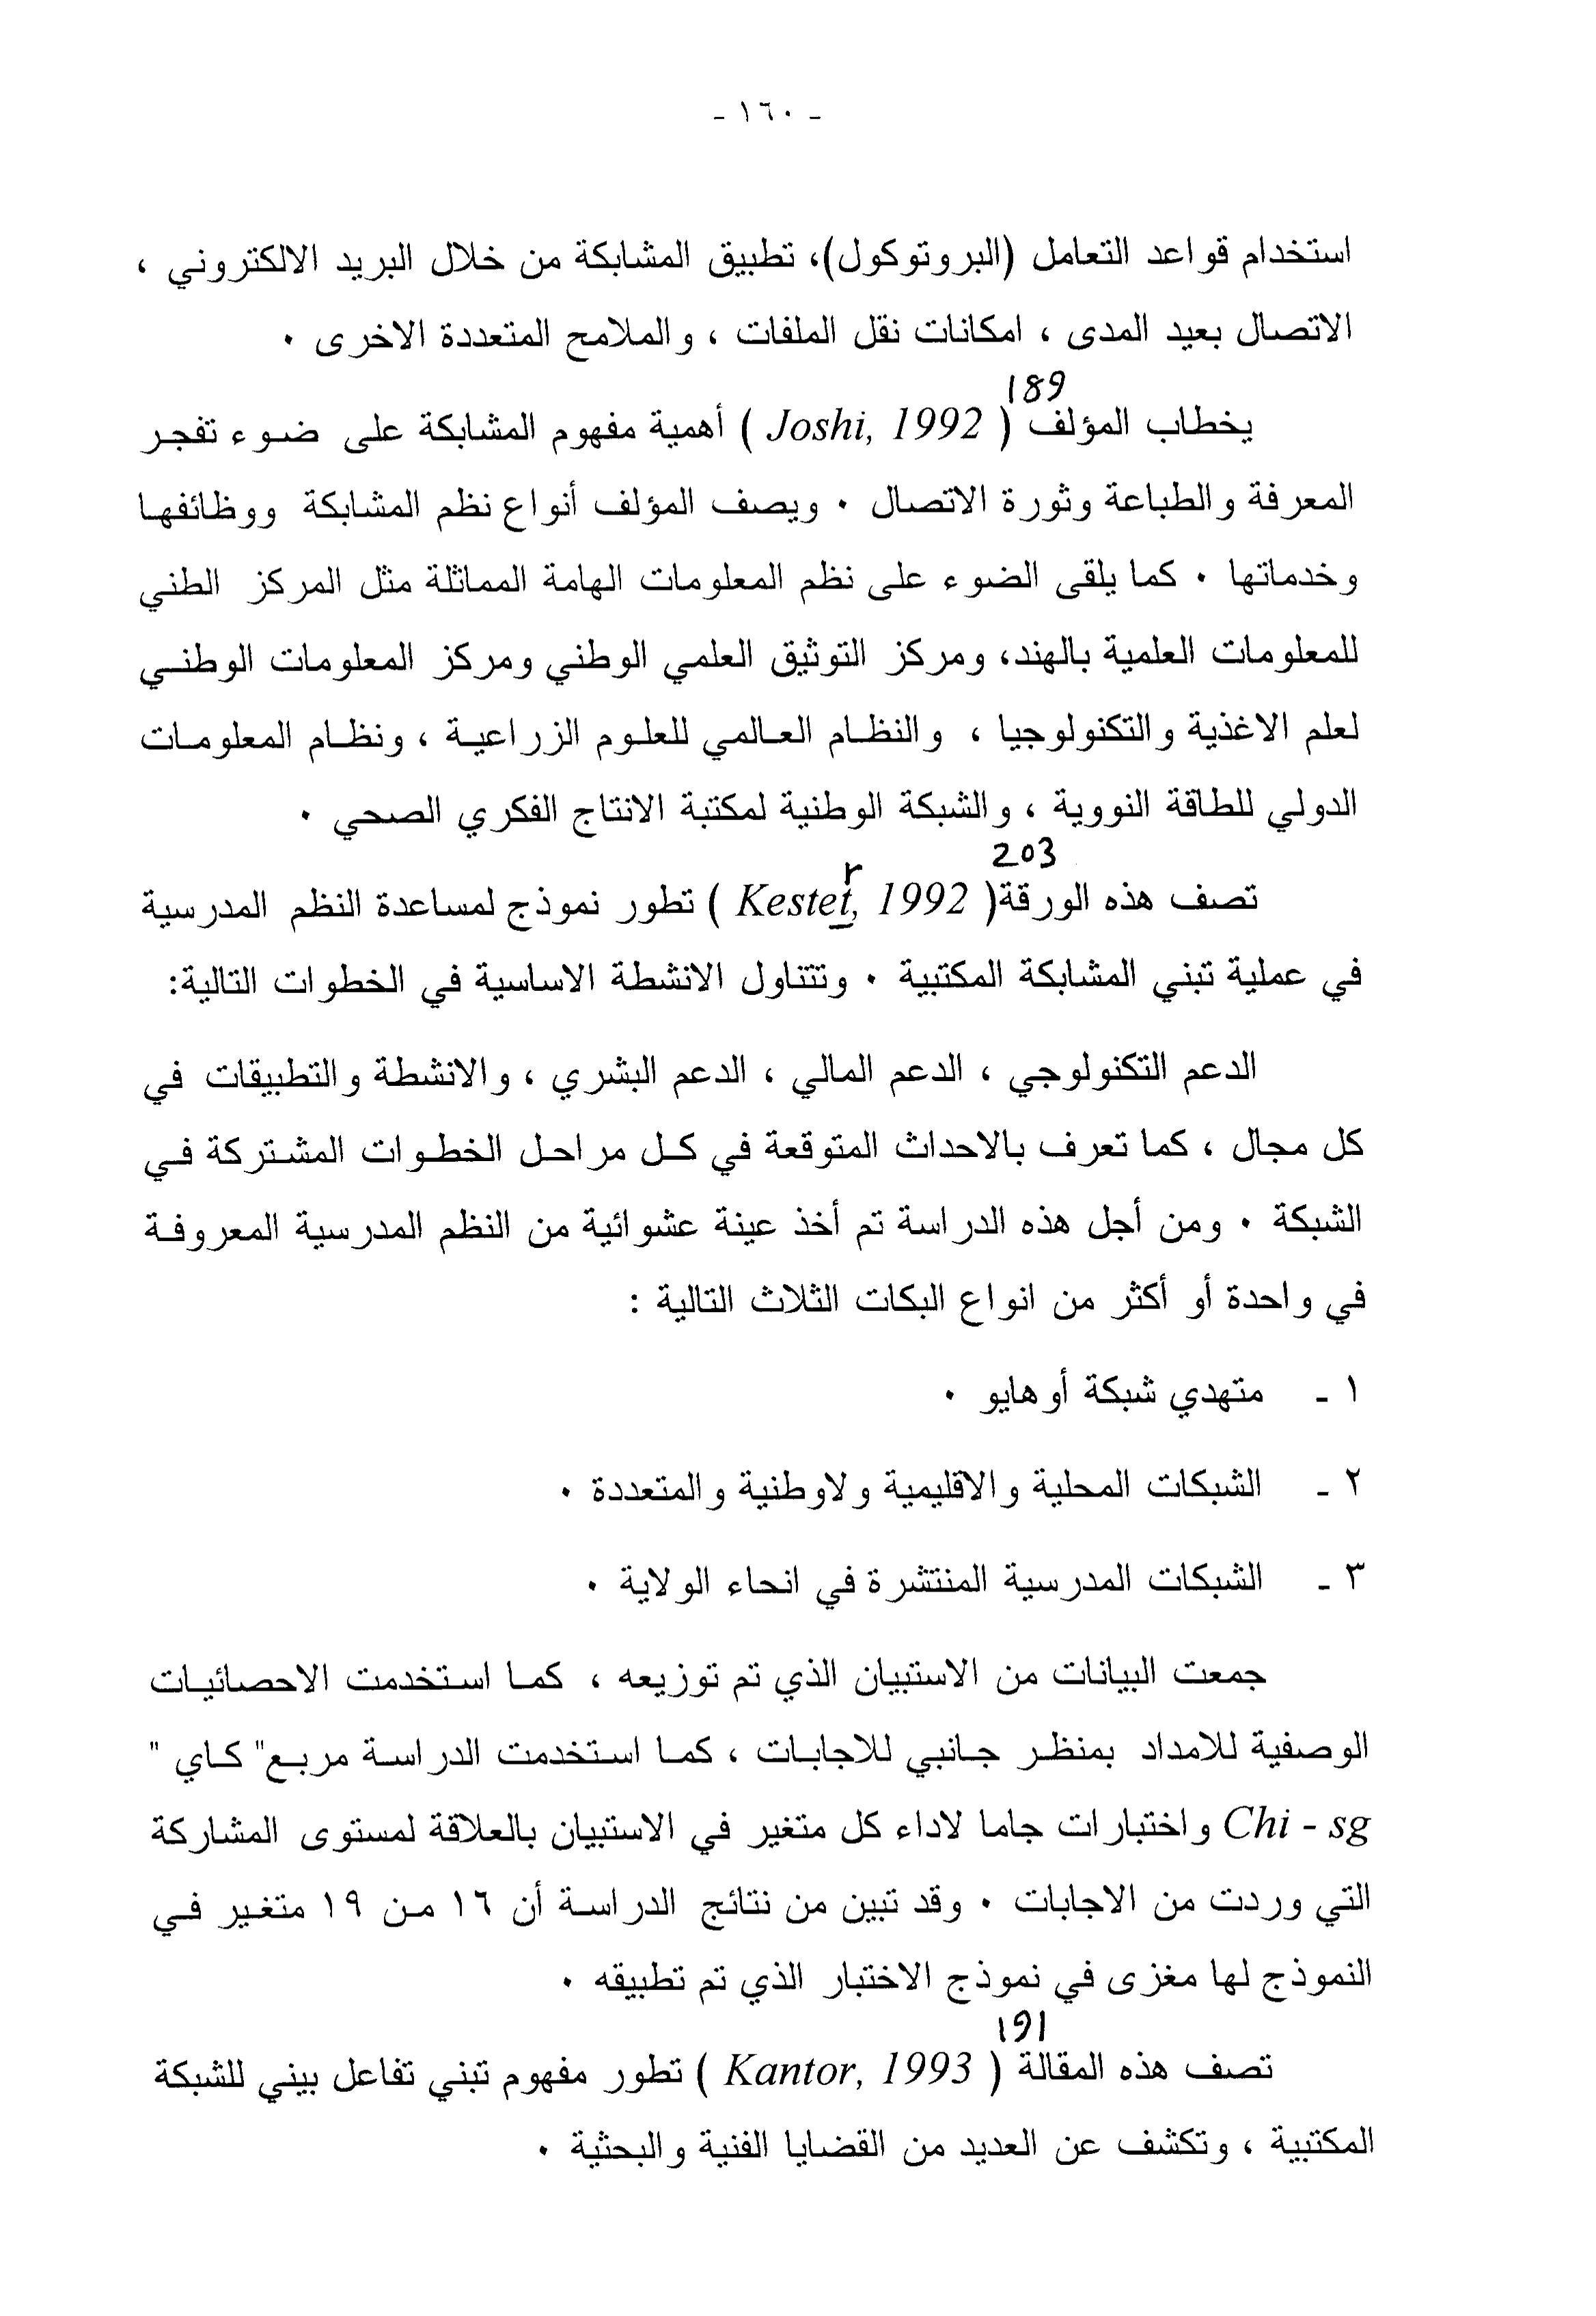 - ١٦٠ -
استخدام قواعد التعامل (البروتوكول)، تطبيق المشابكة من خلال البريد الالكتروني ،
الاتصال بعيد المدى ، امكانات نقل الملفات ، والملامح المتعددة الاخرى ٠
189
يخطاب المؤلف ( Joshi, 1992 ) أهمية مفهوم المشابكة على ضوء تفجر
المعرفة والطباعة وثورة الاتصال ٠ ويصف المؤلف أنواع نظم المشابكة ووظائفها
وخدماتها ٠ كما يلقى الضوء على نظم المعلومات الهامة المماثلة مثل المركز الطني
للمعلومات العلمية بالهند، ومركز التوثيق العلمي الوطني ومركز المعلومات الوطني
لعلم الاغذية والتكنولوجيا ، والنظام العالمي للعلوم الزراعية ، ونظام المعلومات
الدولي للطاقة النووية ، والشبكة الوطنية لمكتبة الانتاج الفكري الصحي ٠
203
r
تصف هذه الورقة( Kestet, 1992 ) تطور نموذج لمساعدة النظم المدرسية
في عملية تبني المشابكة المكتبية ٠ وتتناول الانشطة الاساسية في الخطوات التالية:
الدعم التكنولوجي ، الدعم المالي ، الدعم البشري ، والانشطة والتطبيقات في
كل مجال ، كما تعرف بالاحداث المتوقعة في كل مراحل الخطوات المشتركة في
الشبكة ٠ ومن أجل هذه الدراسة تم أخذ عينة عشوائية من النظم المدرسية المعروفة
في واحدة أو أكثر من انواع البكات الثلاث التالية :
١ - متهدي شبكة أوهايو ٠
٢ - الشبكات المحلية والاقليمية ولاوطنية والمتعددة ٠
٣ - الشبكات المدرسية المنتشرة في انحاء الولاية ٠
جمعت البيانات من الاستبيان الذي تم توزيعه ، كما استخدمت الاحصائيات
الوصفية للامداد بمنظر جانبي للاجابات ، كما استخدمت الدراسة مربع" كاي "
Chi - sg واختبارات جاما لاداء كل متغير في الاستبيان بالعلاقة لمستوى المشاركة
التي وردت من الاجابات ٠ وقد تبين من نتائج الدراسة أن ١٦ من ١٩ متغير في
النموذج لها مغزى في نموذج الاختبار الذي تم تطبيقه ٠
191
تصف هذه المقالة ( Kantor, 1993 ) تطور مفهوم تبني تفاعل بيني للشبكة
المكتبية ، وتكشف عن العديد من القضايا الفنية والبحثية ٠